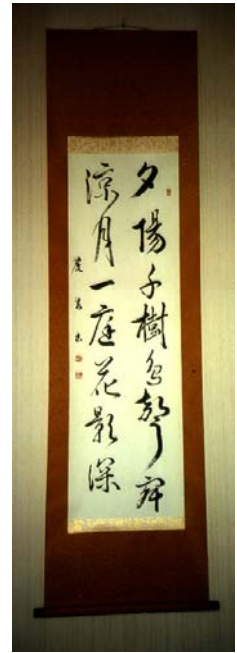 夕陽千樹鳥聲寂
涼月一庭花影深